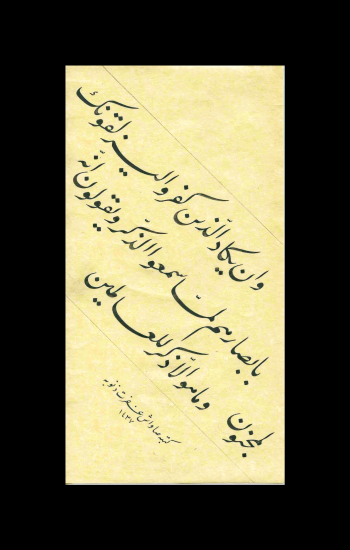 وان يكاد الذين كفروا ليزلقونك
بابصارهم لمّا سمعوا الذكر ويقولون انّه
لمجنون وما هو الّا ذكر للعالمين
كتبه غفرت ذنوبه
١٤٣٧